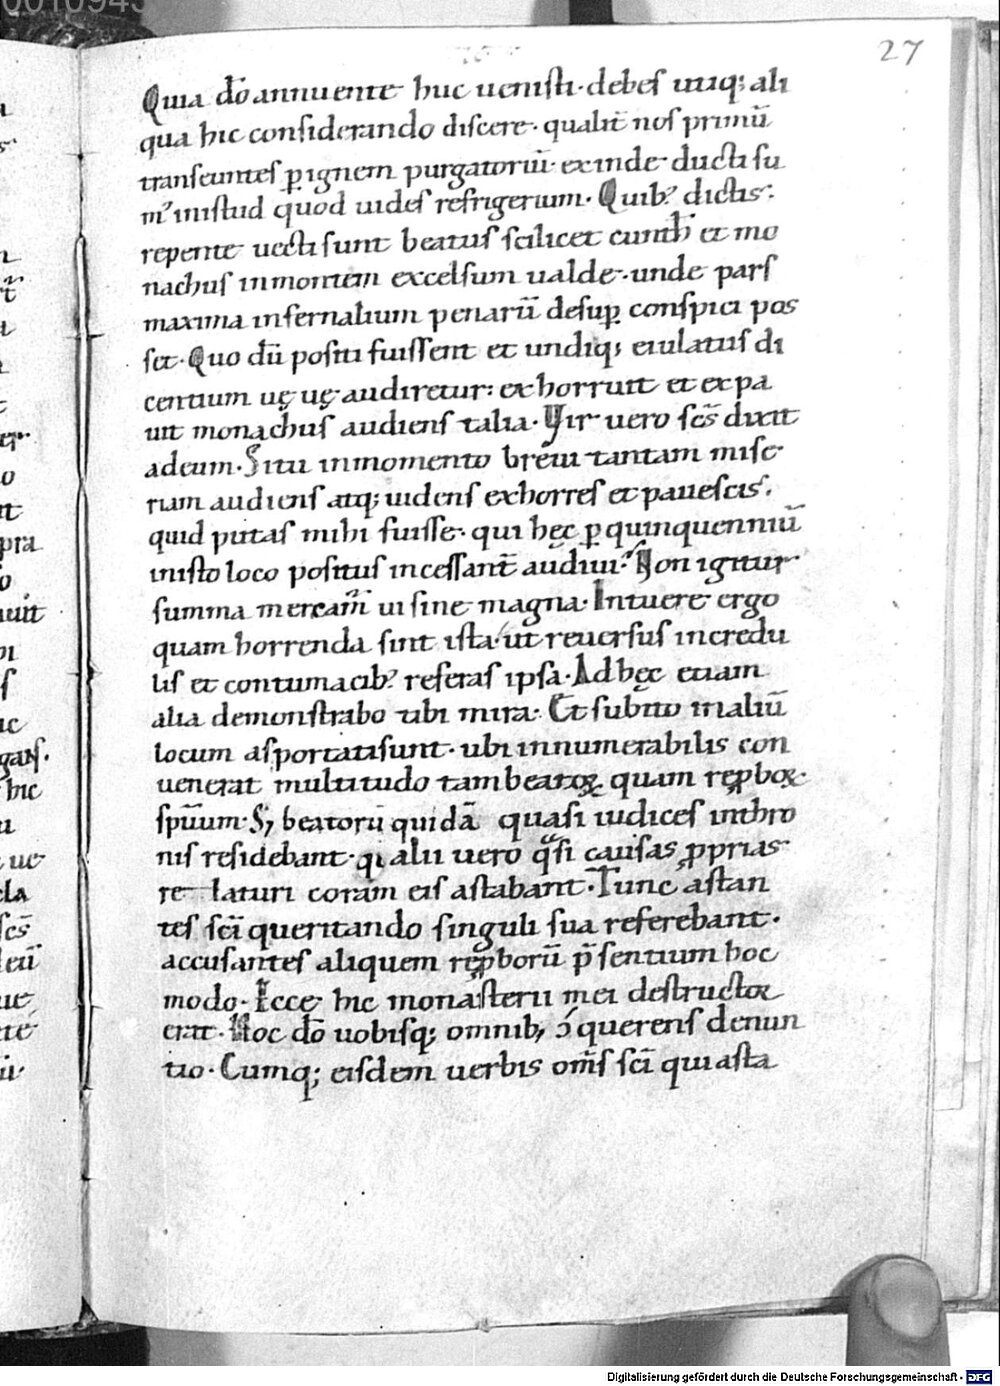 27
Quia dō annuente huc uenisti· debes utiq; ali
qua hic considerando discere· qualit̄ nos primū
transeuntes ꝑ ignem purgatoriū· exinde ducti su
m᾽ inistud quod uides refrigerium· Quib᾽ dictis·
repente uecti sunt beatus scilicet cunth̄ et mo
nachus inmontem excelsum ualde· unde pars
maxima infernalium penarū desuꝑ conspici pos
set· Quo dū positi fuissent et undiq; eiulatus di
centium uę uę audiretur: exhorruit et expa
uit monachus audiens talia· Vir uero scs̄ dixit
adeum· Si tu inmomento breui tantam mise
riam audiens atq; uidens exhorres et pauescis·
quid putas mihi fuisse· qui hęc ꝑ quinquenniū
inisto loco positus incessant̄ audiui? Non igitur
summa mercam̄ ui sine magna· Intuere ergo
quam horrenda sint ista· ut reuersus incredu
lis et contumacib᾽ referas ipsa· Adhęc etiam
alia demonstrabo tibi mira· Et subito inaliū
locum asportati sunt· ubi innumerabilis con
uenerat multitudo tam beatoꝝ quam reꝓboꝝ
spūum· S; beatorū quidā quasi iudices inthro
nis residebant· qi alii uero qᵃsi causas ꝓprias
re laturi coram eis astabant· Tunc astan
tes sc̄i queritando singuli sua referebant·
accusantes aliquem reꝓborū p̄sentium hoc
modo· Ecce hic monasterii mei destructor
erat· Hoc dō uobisq; omnib; ɔquerens denun
tio· Cumq; eisdem uerbis om̄s sc̄i qui asta
Digitalisierung gefördert durch die Deutsche Forschungsgemeinschaft - DFG